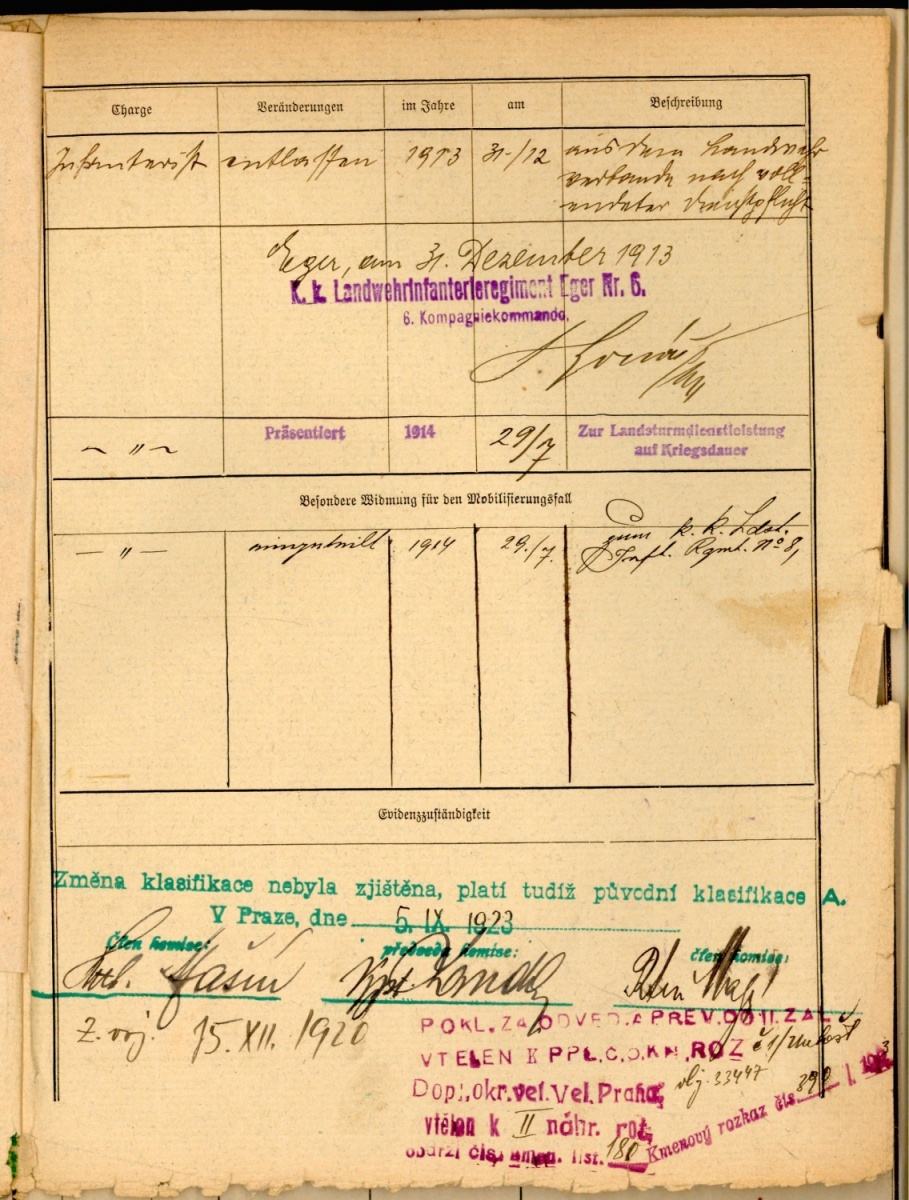 Charge Veränderungen im Jahre am Beschreibung
Infanterist entlassen 1913 31/12 aus dem Landwehr
verbande nach voll-
endeter Dienstpflicht
Eger, am 31. Dezember 1913
K. k. Landwehrinfanterieregiment Eger Nr. 6.
6. Kompagniekommando.
~ " ~ Präsentiert 1914 29/7 Zur Landsturmdienstleistung
auf Kriegsdauer
Besondere Widmung für den Mobilisierungsfall
— " — eingeteilt 1914 29./7. zum k. k. Ldst.
Inft. Rgmt. No 8,
Evidenzzuständigkeit
Změna klasifikace nebyla zjištěna, platí tudíž původní klasifikace A.
V Praze, dne 5. IX. 1923
člen komise: předseda komise: člen komise:
Z. voj. 15. XII. 1920
POKL. ZA ODVED. A PREV. DO II. ZAL.
VTELEN K PPL. Č. 5. KN. ROZ č 1/
33447
Dopl. okr. vel. Vel. Praha,
vtělen k II náhr. rot,
obdržl čís. kmen. list. 180 Kmenový rozkaz čís. 390 1. 1923